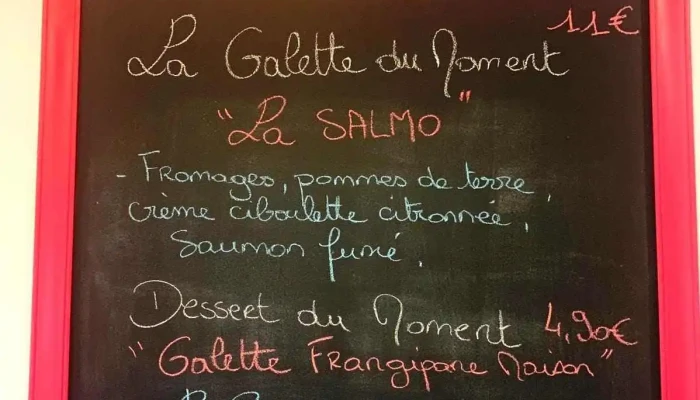 11€
La Galette du Moment
"La SALMO"
- Fromages, pommes de terre,
crème ciboulette citronnée,
Saumon fumé.
Dessert du Moment 4,90€
"Galette Frangipane Maison"